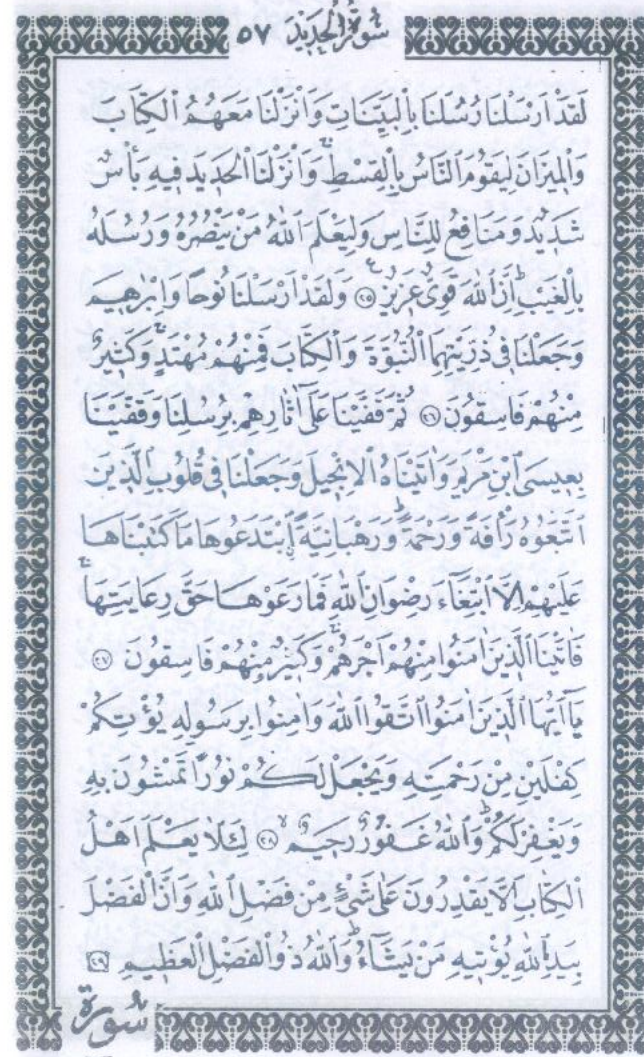 سُورَةُ الْحَدِيدِ ٥٧
لَقَدْ اَرْسَلْنَا رُسُلَنَا بِالْبَيِّنَاتِ وَاَنْزَلْنَا مَعَهُمُ الْكِتَابَ
وَالْمِيزَانَ لِيَقُومَ النَّاسُ بِالْقِسْطِ وَاَنْزَلْنَا الْحَدِيدَ فِيهِ بَأْسٌ
شَدِيدٌ وَمَنَافِعُ لِلنَّاسِ وَلِيَعْلَمَ اللّٰهُ مَنْ يَنْصُرُهُ وَرُسُلَهُ
بِالْغَيْبِ اِنَّ اللّٰهَ قَوِىٌّ عَزِيزٌ ٢٥ وَلَقَدْ اَرْسَلْنَا نُوحًا وَاِبْرٰهِيمَ
وَجَعَلْنَا فِى ذُرِّيَّتِهِمَا النُّبُوَّةَ وَالْكِتَابَ فَمِنْهُمْ مُهْتَدٍ وَكَثِيرٌ
مِنْهُمْ فَاسِقُونَ ٢٦ ثُمَّ قَفَّيْنَا عَلٰٓى اٰثَارِهِمْ بِرُسُلِنَا وَقَفَّيْنَا
بِعِيسَى ابْنِ مَرْيَمَ وَاٰتَيْنَاهُ الْاِنْجِيلَ وَجَعَلْنَا فِى قُلُوبِ الَّذِينَ
اتَّبَعُوهُ رَأْفَةً وَرَحْمَةً وَرَهْبَانِيَّةً اِبْتَدَعُوهَا مَا كَتَبْنَاهَا
عَلَيْهِمْ اِلَّا ابْتِغَٓاءَ رِضْوَانِ اللّٰهِ فَمَا رَعَوْهَا حَقَّ رِعَايَتِهَا
فَاٰتَيْنَا الَّذِينَ اٰمَنُوا مِنْهُمْ اَجْرَهُمْ وَكَثِيرٌ مِنْهُمْ فَاسِقُونَ ٢٧
يَٓا اَيُّهَا الَّذِينَ اٰمَنُوا اتَّقُوا اللّٰهَ وَاٰمِنُوا بِرَسُولِهِ يُؤْتِكُمْ
كِفْلَيْنِ مِنْ رَحْمَتِهِ وَيَجْعَلْ لَكُمْ نُورًا تَمْشُونَ بِهِ
وَيَغْفِرْ لَكُمْ وَاللّٰهُ غَفُورٌ رَحِيمٌ ٢٨ لِئَلَّا يَعْلَمَ اَهْلُ
الْكِتَابِ اَلَّا يَقْدِرُونَ عَلٰى شَىْءٍ مِنْ فَضْلِ اللّٰهِ وَاَنَّ الْفَضْلَ
بِيَدِ اللّٰهِ يُؤْتِيهِ مَنْ يَشَٓاءُ وَاللّٰهُ ذُو الْفَضْلِ الْعَظِيمِ ٢٩
سُورَة